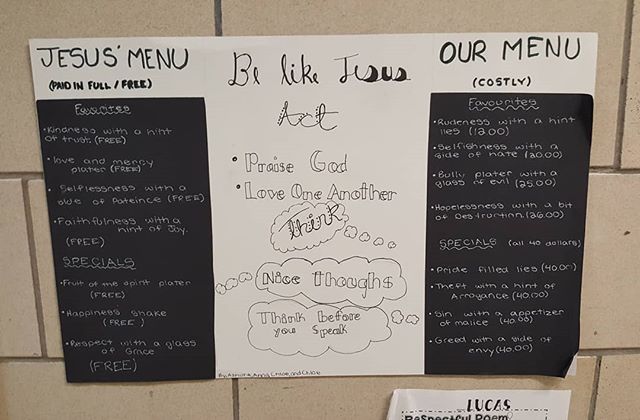 JESUS' MENU
(PAID IN FULL / FREE)
Favorites
•Kindness with a hint
of trust. (FREE)
•love and mercy
plater (FREE)
• Selflessness with a
side of Pateince (FREE)
•Faithfulness with a
hint of Joy.
(FREE)
SPECIALS
•Fruit of the spirit plater
(FREE)
•Happiness shake
(FREE)
•Respect with a glass
of Grace
(FREE)
Be like Jesus
Act
• Praise God
• Love One Another
Think
Nice Thoughs
Think before
you Speak
By:
Anna, Chloe, and Chloe
OUR MENU
(COSTLY)
Favourites
•Rudeness with a hint
lies (12.00)
•Selfishness with a
side of hate (20.00)
•Bully plater with a
glass of evil (25.00)
•Hopelessness with a bit
of Destruction. (26.00)
SPECIALS (all 40 dollars)
•Pride filled lies (40.00)
•Theft with a hint of
Arroyance (40.00)
•Sin with a appetizer
of malice (40.00)
•Greed with a side of
envy (40.00)
LUCAS
ResPectful Poem